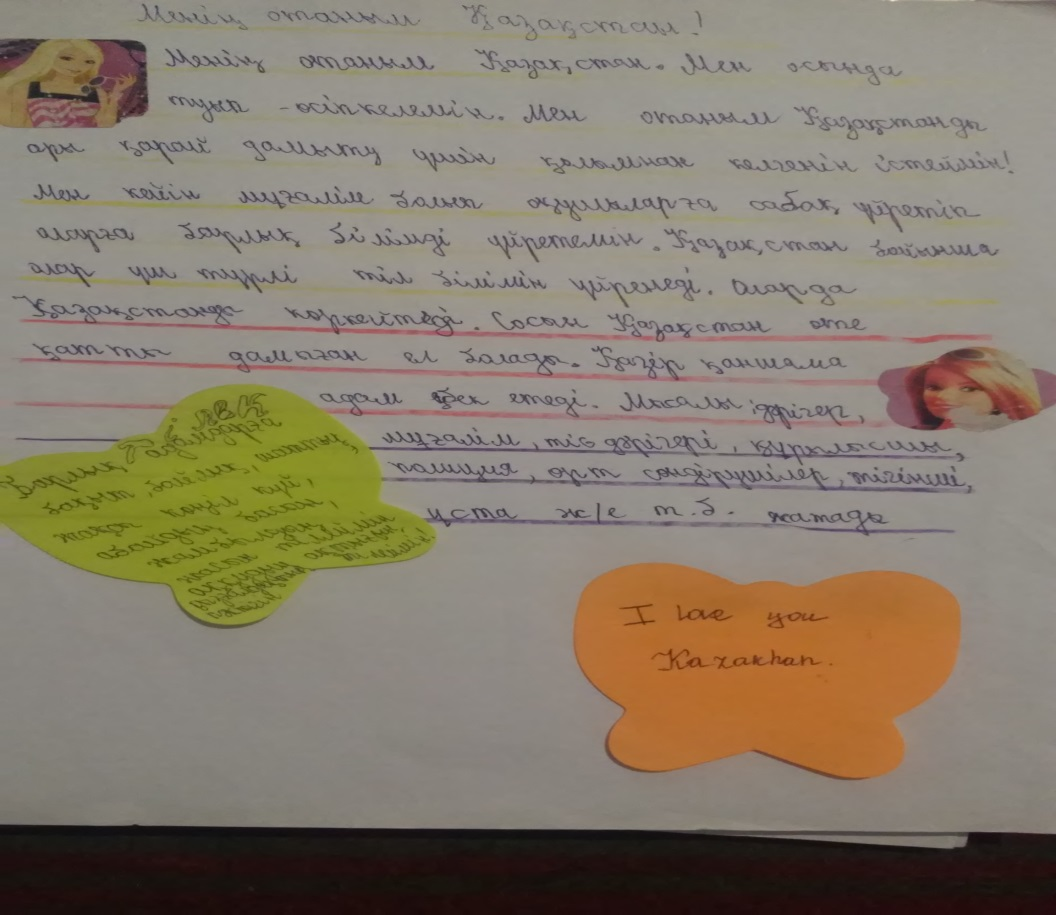 Менің отаным Қазақстан!
Менің отаным Қазақстан. Мен осында
туып -өсіпкелемін. Мен отаным Қазақстанды
ары қарай дамыту үшін қолымнан келгенін істеймін!
Мен кейін мұғалім болып оқушыларға сабақ үйретіп
оларға барлық білімді үйретемін. Қазақстан бойынша
олар үш түрлі тіл білімін үйренеді. Оларда
Қазақстанда көркейтеді. Сосын Қазақстан өте
қатты дамыған ел болады. Қазір қаншама
адам еңбек етеді. Мысалы: дәрігер,
мұғалім, тіс дәрігері, құрылысшы,
полиция, өрт сөндірушілер, тігінші,
ұста ж/е т.б. жатады
Барлық адамдарға
бақыт, байлық, шаттық,
жақсы көңіл күй,
абайдың басын,
I love you
Kazakhan.